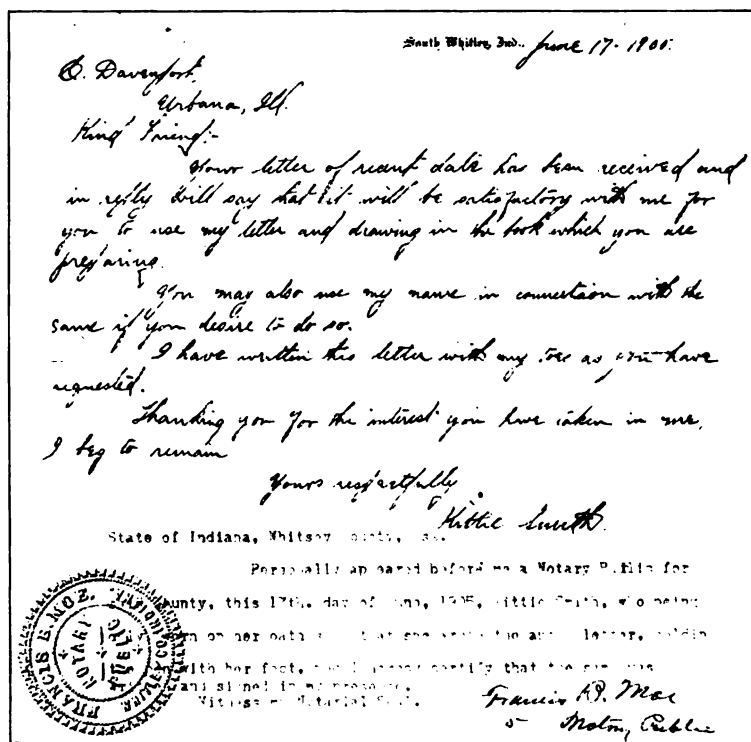 South Whitley, Ind., June 17 - 1905.
Davenport,
Urbana, Ill.
Kind Friend:-
Your letter of recent date has been received and
in reply will say that it will be satisfactory with me for
you to use my letter and drawing in the book which you are
preparing.
You may also use my name in connection with the
same if you desire to do so.
I have written this letter with my toes as you have
requested.
Thanking you for the interest you have taken in me,
I beg to remain
Yours respectfully
Kittie Smith.
State of Indiana, Whitley
Personally appeared before me a Notary Public for
ounty, this 17th. day of June, 1905, Kittie Smith, who being
orn on her oath that she wrote the letter, holdin
with her foot, certify that the same was
and signed in my presence.
Witness my Notarial Seal.
Francis E. Moe
Notary Public
FRANCIS E. MOE.
NOTARY